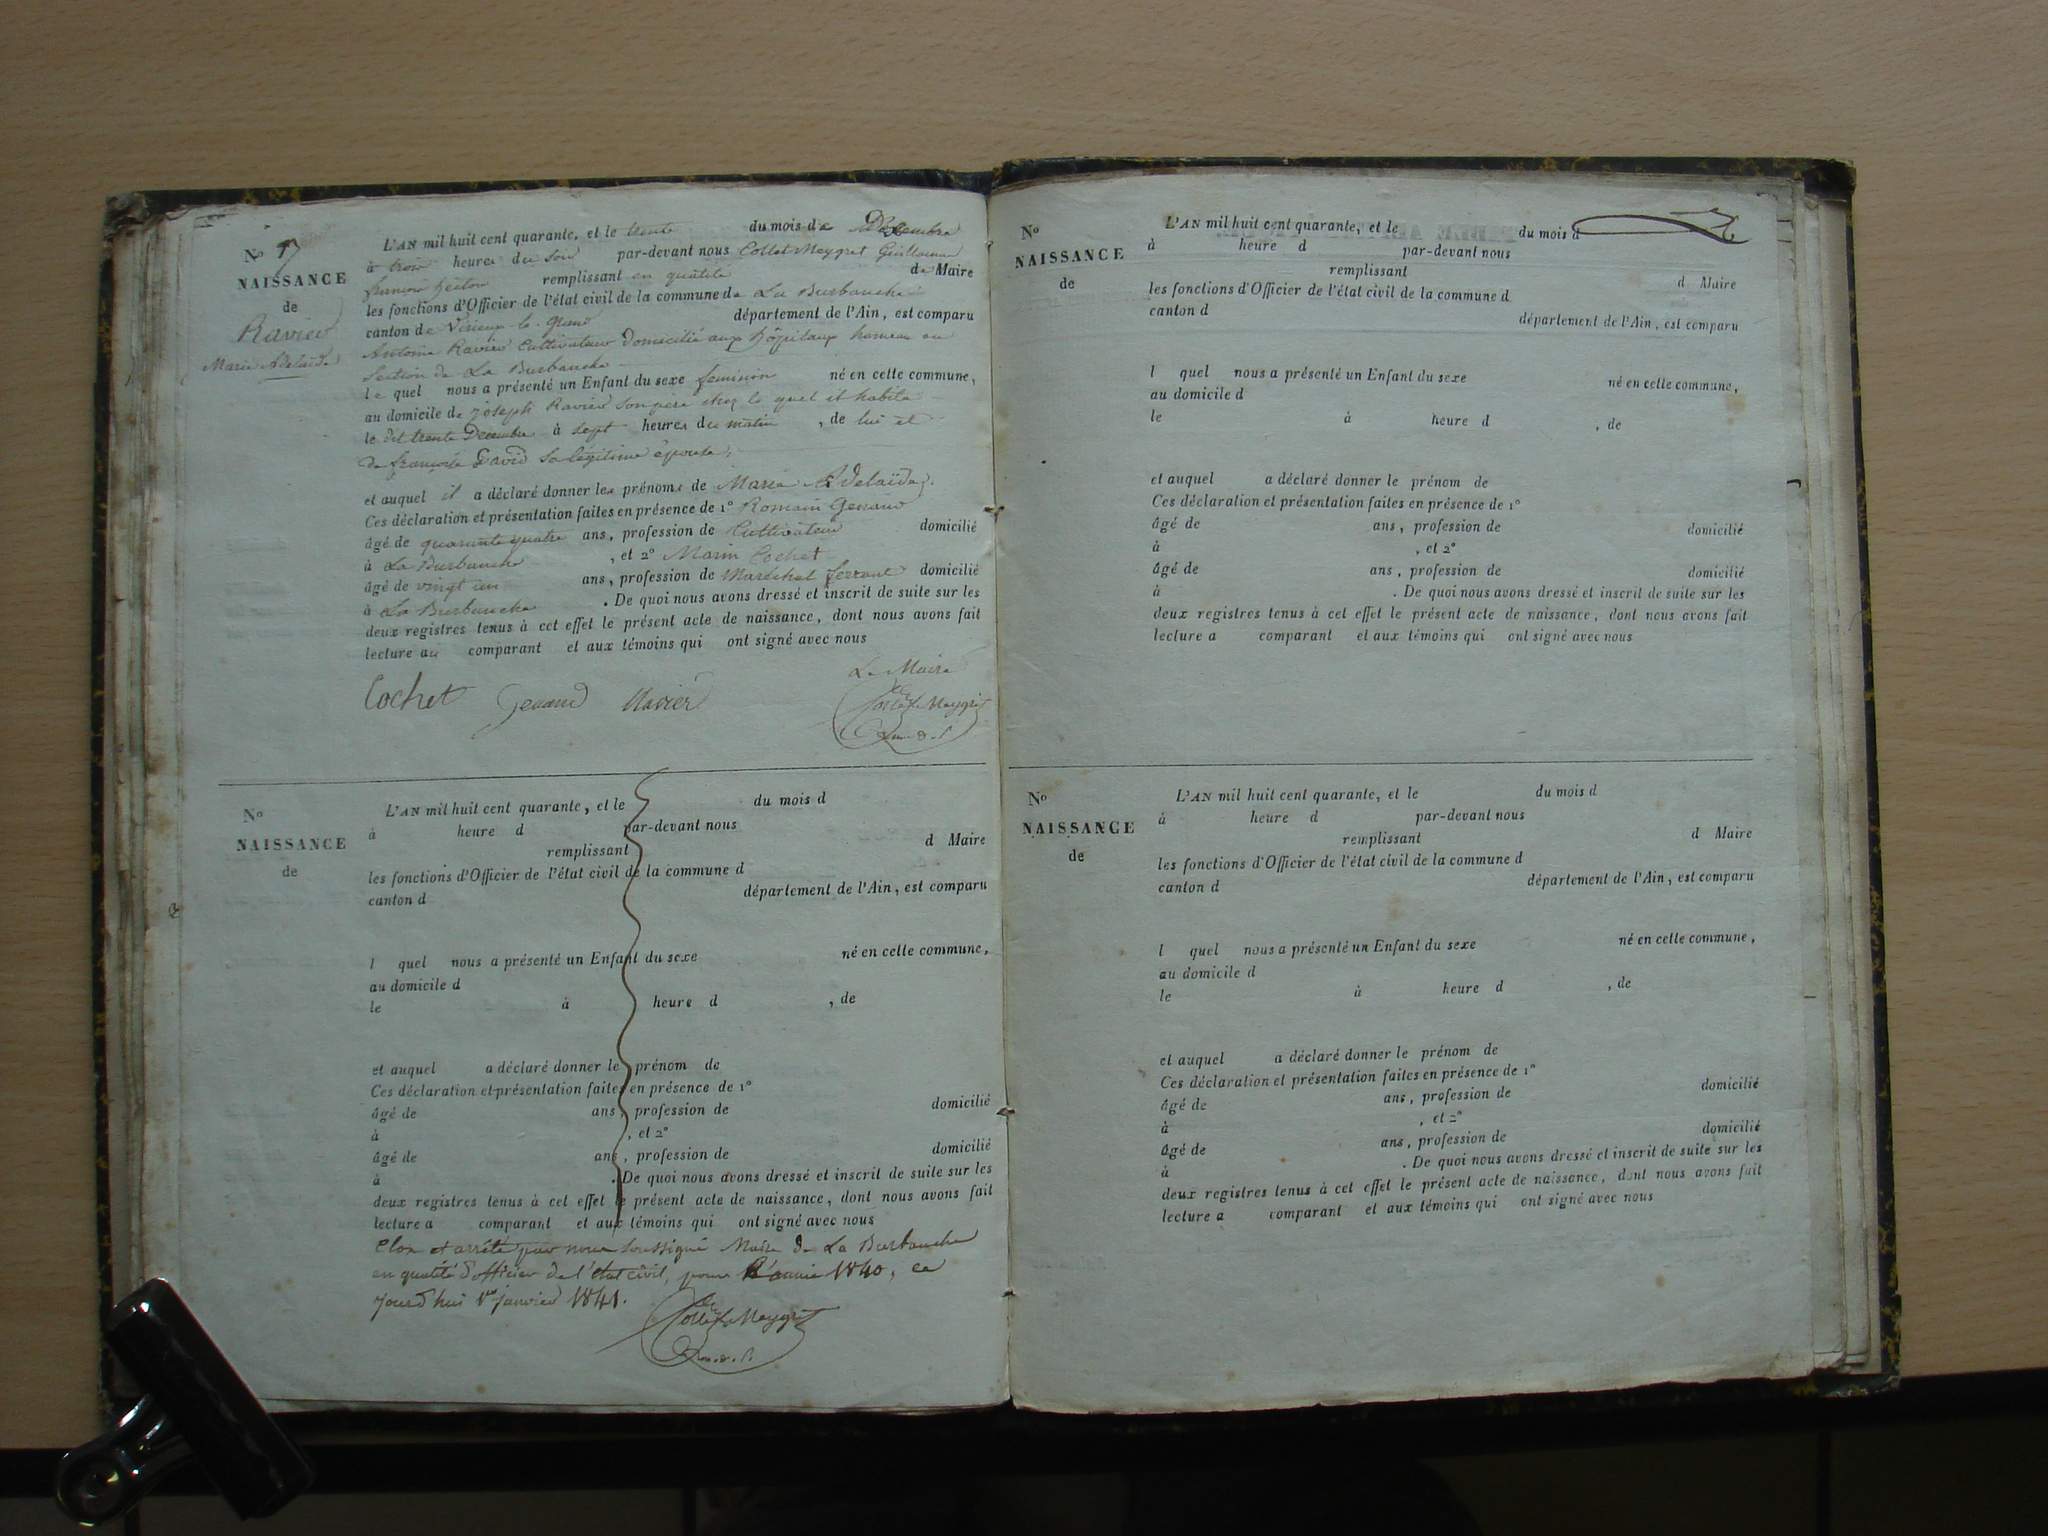 N° 7
NAISSANCE
de
Ravier
Marie Adelaïde
L'AN mil huit cent quarante, et le trente du mois de Décembre
à trois heures du soir par-devant nous Collet Meygret Guillaume
remplissant en qualité de Maire
les fonctions d'Officier de l'état civil de la commune de La Burbanche
canton de Virieux-le-Grand département de l'Ain, est comparu
Antoine Ravier Cultivateur domicilié aux hôpitaux hameau ou
Section de La Burbanche
le quel nous a présenté un Enfant du sexe féminin né en cette commune,
au domicile de joseph Ravier son père chez le quel il habite
le dit trente Décembre à Sept heures du matin, de lui et
de françoise David Sa légitime épouse,
et auquel il a déclaré donner les prénoms de Marie Adelaïde.
Ces déclaration et présentation faites en présence de 1° Romain Genand
âgé de quarante quatre ans, profession de Cultivateur domicilié
à La Burbanche, et 2° Marin Cochet
âgé de vingt un ans, profession de Maréchal ferrant domicilié
à La Burbanche. De quoi nous avons dressé et inscrit de suite sur les
deux registres tenus à cet effet le présent acte de naissance, dont nous avons fait
lecture au comparant et aux témoins qui ont signé avec nous
Le Maire
Cochet Genand Ravier Collet Meygret
N°
NAISSANCE
de
L'AN mil huit cent quarante, et le du mois d
à heure d par-devant nous
remplissant d Maire
les fonctions d'Officier de l'état civil de la commune d
canton d département de l'Ain, est comparu
l quel nous a présenté un Enfant du sexe né en cette commune,
au domicile d
le à heure d , de
et auquel a déclaré donner le prénom de
Ces déclaration et présentation faites en présence de 1°
âgé de ans, profession de domicilié
à , et 2°
âgé de ans, profession de domicilié
à . De quoi nous avons dressé et inscrit de suite sur les
deux registres tenus à cet effet le présent acte de naissance, dont nous avons fait
lecture a comparant et aux témoins qui ont signé avec nous
Clos et arrêté par nous Soussigné Maire de La Burbanche
en qualité d'officier de l'état civil, pour l'année 1840, ce
jourd'hui 1er janvier 1841.
Collet Meygret
N°
NAISSANCE
de
L'AN mil huit cent quarante, et le du mois d
à heure d par-devant nous
remplissant d Maire
les fonctions d'Officier de l'état civil de la commune d
canton d département de l'Ain, est comparu
l quel nous a présenté un Enfant du sexe né en cette commune,
au domicile d
le à heure d , de
et auquel a déclaré donner le prénom de
Ces déclaration et présentation faites en présence de 1°
âgé de ans, profession de domicilié
à , et 2°
âgé de ans, profession de domicilié
à . De quoi nous avons dressé et inscrit de suite sur les
deux registres tenus à cet effet le présent acte de naissance, dont nous avons fait
lecture a comparant et aux témoins qui ont signé avec nous
N°
NAISSANCE
de
L'AN mil huit cent quarante, et le du mois d
à heure d par-devant nous
remplissant d Maire
les fonctions d'Officier de l'état civil de la commune d
canton d département de l'Ain, est comparu
l quel nous a présenté un Enfant du sexe né en cette commune,
au domicile d
le à heure d , de
et auquel a déclaré donner le prénom de
Ces déclaration et présentation faites en présence de 1°
âgé de ans, profession de domicilié
à , et 2°
âgé de ans, profession de domicilié
à . De quoi nous avons dressé et inscrit de suite sur les
deux registres tenus à cet effet le présent acte de naissance, dont nous avons fait
lecture a comparant et aux témoins qui ont signé avec nous